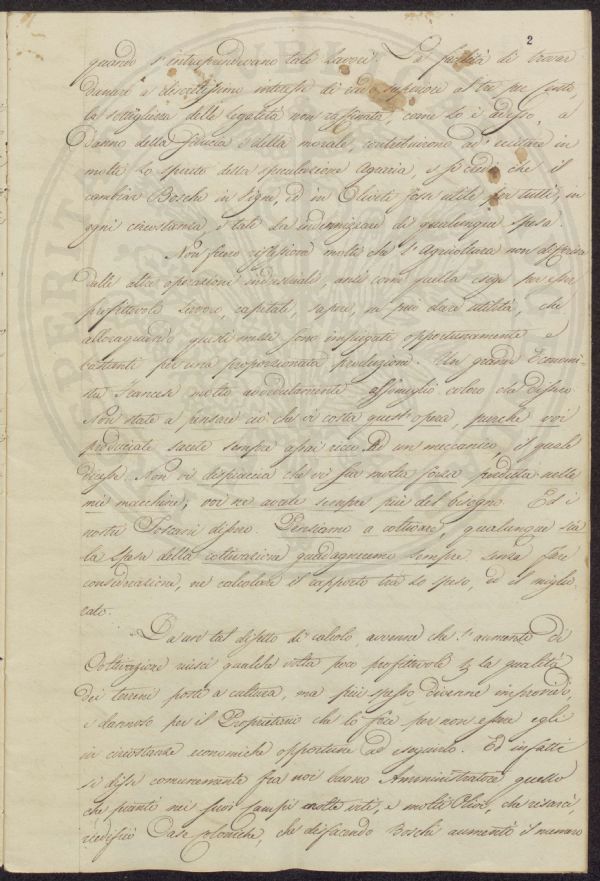 2
quando s'intraprendevano tali lavori. La facilità di trovar
denaro a discretissimo interesse di cioè superiore al tre per cento,
la sottigliezza della legalità non raffinata, come lo è adesso, a
danno della fiducia e della morale, contribuirono ad eccitare in
molti lo spirito della speculazione Agraria, e si credè che il
cambiar Boschi in Vigne, ed in Oliveti fosse utile per tutti, in
ogni circostanza, e tale da indennizzare di qualunque spesa.
Non fecero riflessione molti che l'Agricoltura non differisce
dalle altre operazioni industriali, anzi com' quella esige per esser
profittevole lavoro, capitale, sapere, nè può dare utilità, che
allora quando questi mezzi sono impiegati opportunamente e
bastanti per una proporzionata produzione. Un grande Economi-
sta Francese molto avvedutamente assomiglia coloro che dissero
Non state a pensare ciò che vi costa quest'opera, purchè voi
produciate sarete sempre assai ricco, ad un meccanico, il quale
dicesse. Non vi dispiaccia che vi sia molta forza perduta nelle
mie macchine; voi ne avrete sempre più del bisogno. Ed i
nostri Toscani dissero. Pensiamo a coltivare, qualunque sia
la spesa della coltivazione guadagneremo sempre senza fare
considerazione, nè calcolare il rapporto tra lo speso, ed il miglio-
rato.
Da un tal difetto di calcolo avvenne che l'aumento di
Coltivazione riuscì qualche volta poco profittevole per la qualità
dei terreni posti a cultura, ma più spesso divenne improvido,
e dannoso per il Proprietario che lo fece per non essere egli
in circostanze economiche opportune ad eseguirlo. Ed infatti
si disse comunemente fra noi buono Amministratore quello
che piantò nei suoi campi molte viti, e molti Olivi, che risarcì,
riedificò Case coloniche, che disfacendo Boschi aumentò il numero